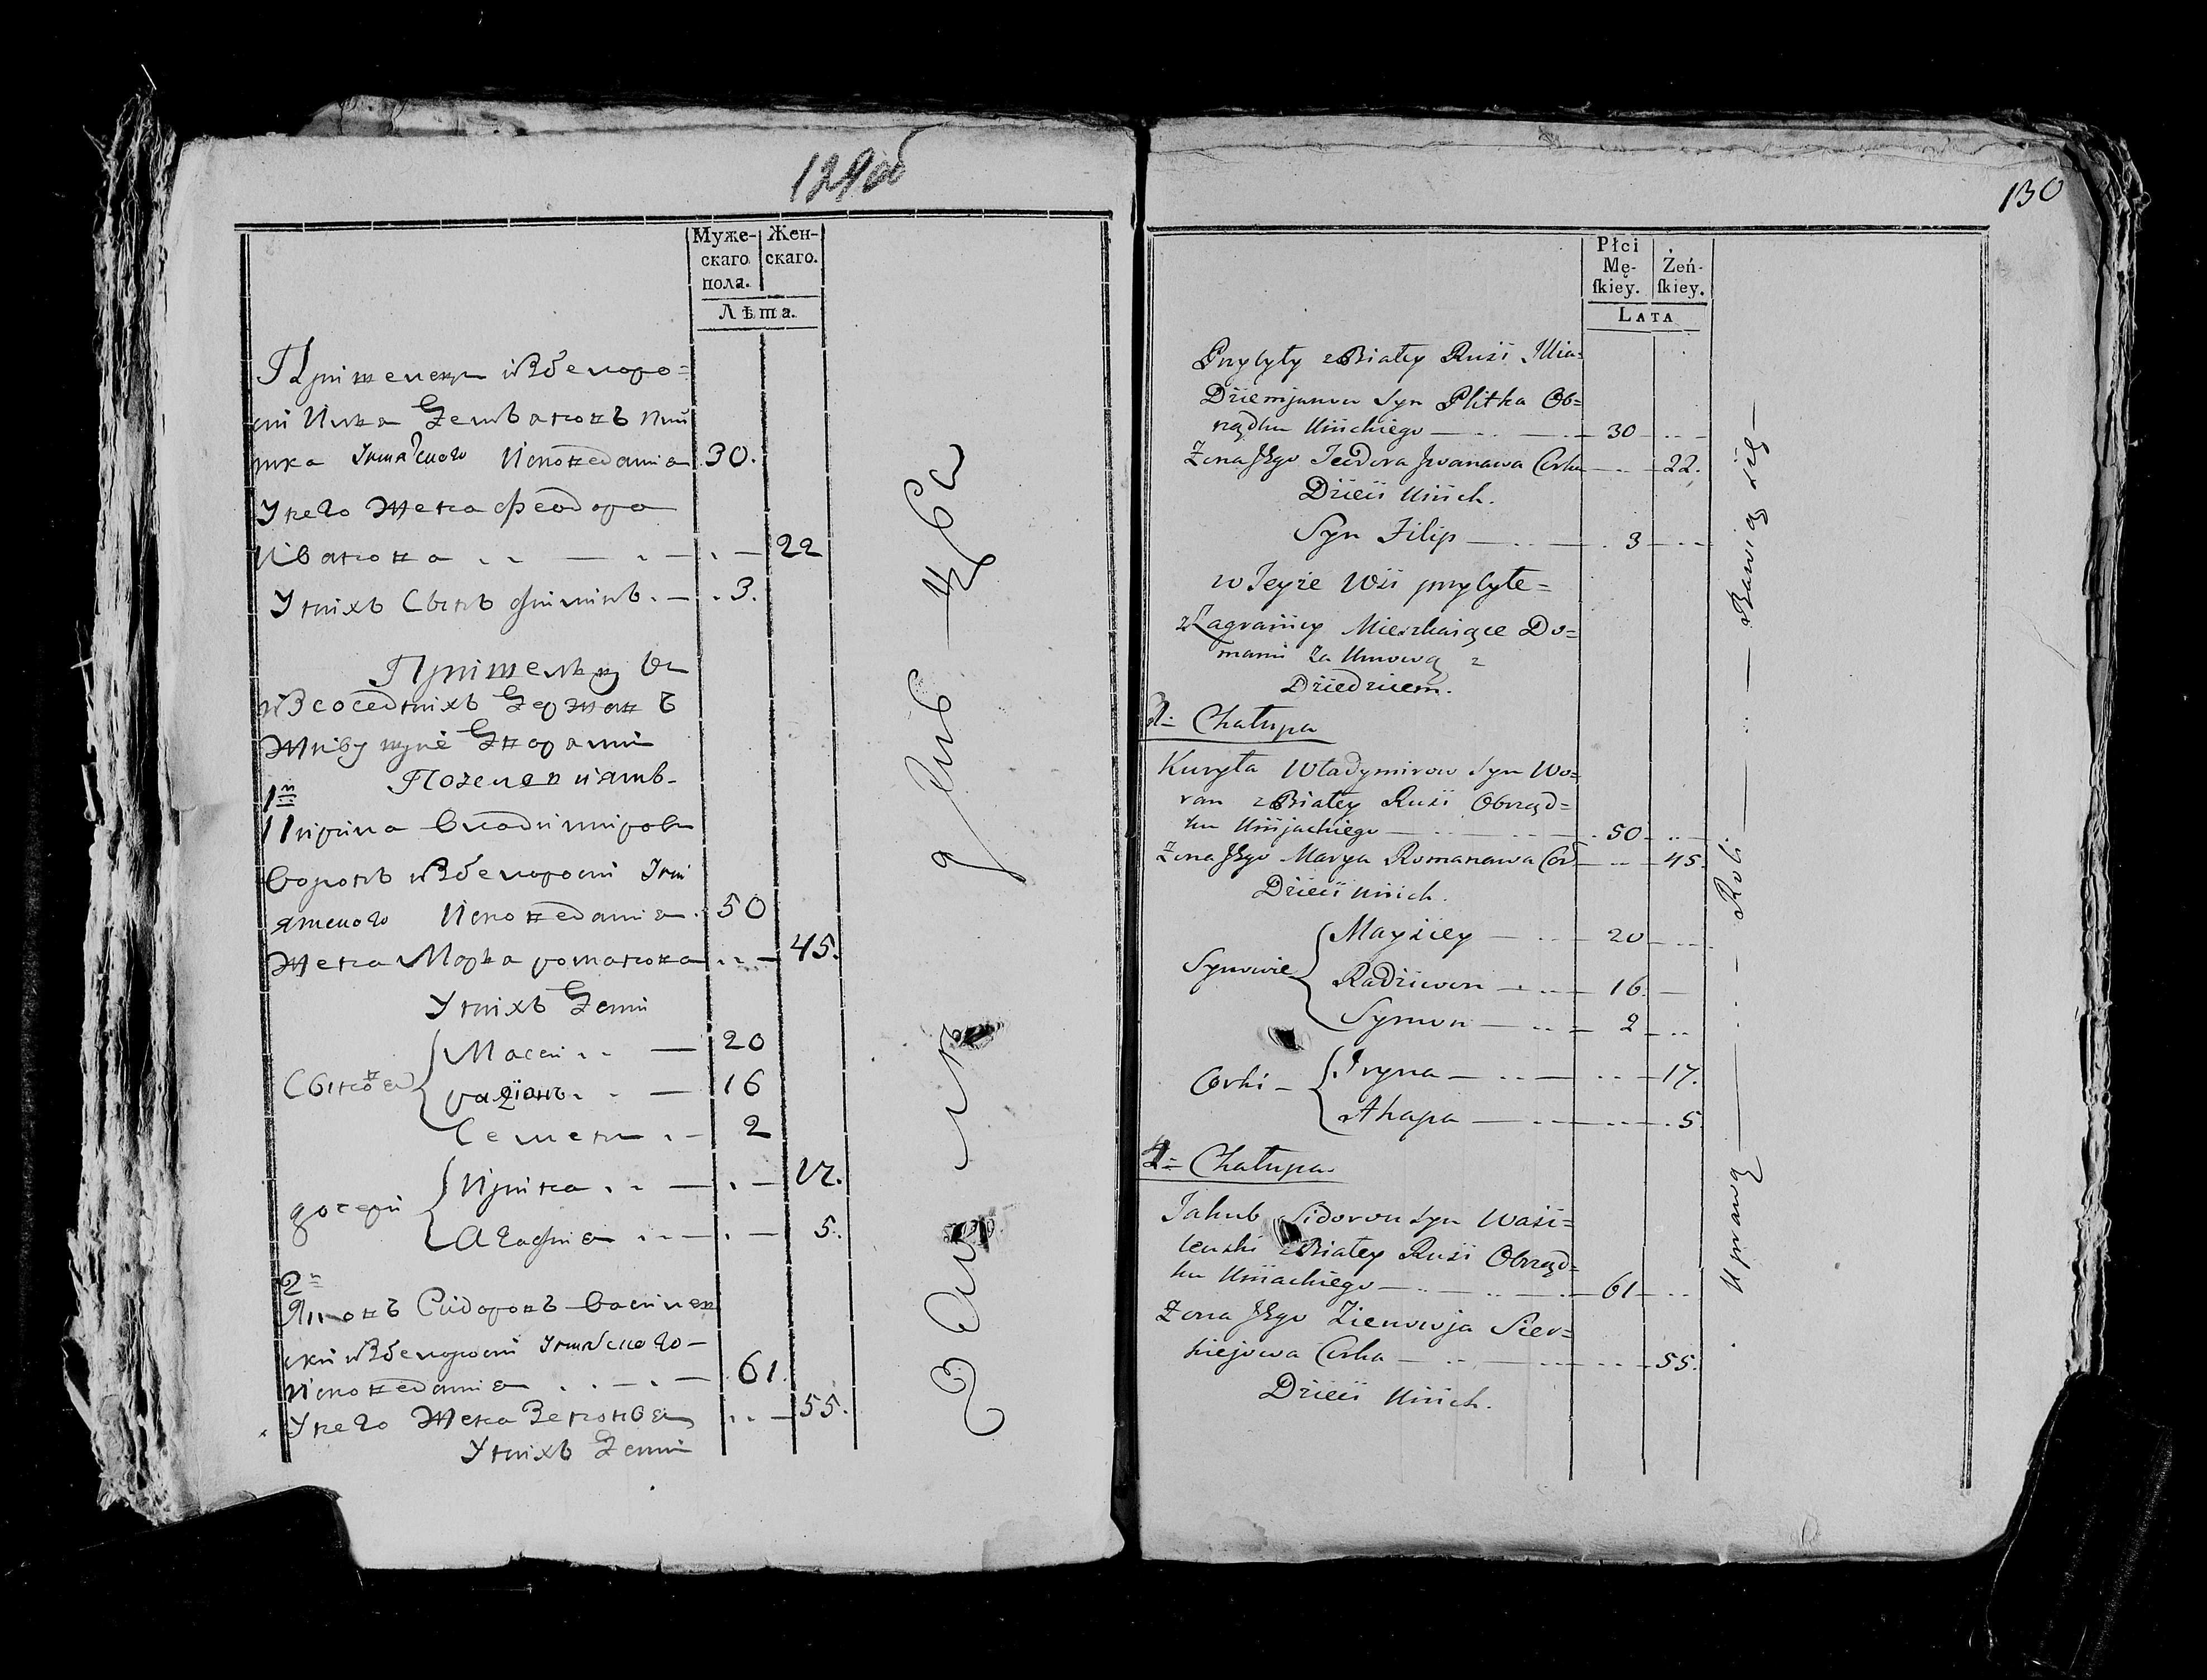 129об
Муже-
скаго
пола.
Жен-
скаго.
Лѣта.
Пришелецъ изБелоро=
си Илья Демьановъ пли
тка УниАцкого Исповедания 30.
Унего Жена феодора
Иванова 22
Унихъ Сынъ филипъ. 3.
Пришельцы
изСоседнихъ Держав
Живущие Дворами
1й
Кирила Владимировъ
Воронъ изБелороси Уни
ятского Исповедания 50
Жена Марья романова 45.
Унихъ Дети
Сыновя
Масеи 20
радионъ 16
Семенъ 2
дочери
Ирина 17.
Агафия 5.
2й
Яковъ Сидоровъ Василев
ски изБелороси Униацкого
Исповедания 61.
Унего Жена Зеновея 55.
Унихъ Дети
130
Płci
Mę-
ſkiey.
Żeń-
ſkiey.
LATA
Przybyły z Białey Rusi Illia
Dziemjanow Syn Plitka Ob=
rządku Uniickiego 30
Zona Jego Teodora Jwanawa Corka 22.
Dzieci Uniich.
Syn Filip 3
w Teyże Wsi przybyłe=
z Zagranicy Mieszkaiące Do=
mami za Umową z
Dziedzicem.
1= Chałupa
Kuryła Władymirow Syn Wo=
ron z Białey Rusi Obrząd=
ku Uniijackiego 50
Zona Jego Marya Romanawa Cor 45.
Dzieci Uniich.
Synowie
Mayżiey 20
Radziwon 16.
Symon 2
Corki
Iryna 17.
Ahapa 5
2= Chałupa
Jakub Sidorow Syn Wasi=
lewski z Białey Rusi Obrząd=
ku Uniiackiego 61
Zona Jego Zienowja Sier=
hiejowa Corka 55.
Dzieci Uniich.
Uprawą Roli Bawią się